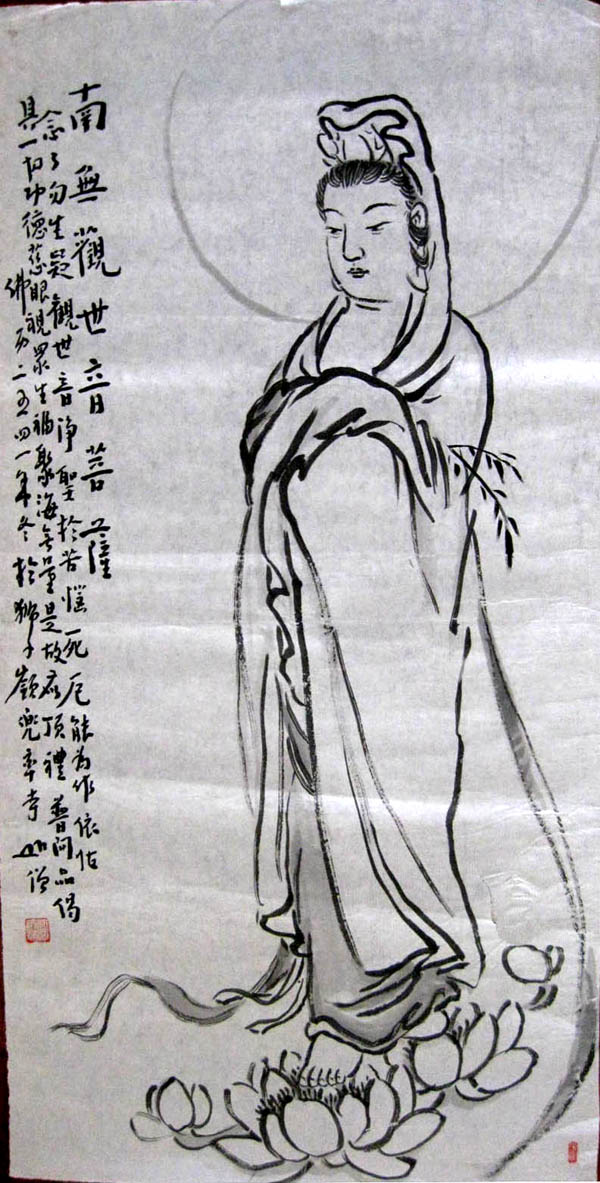 南無觀世音菩薩
念々勿生疑觀世音淨聖於苦惱死厄能为作依怙
具一切功德慈眼視眾生福聚海無量是故应頂禮 普门品偈
佛历二五四一年冬於獅子嶺兜率寺 僧